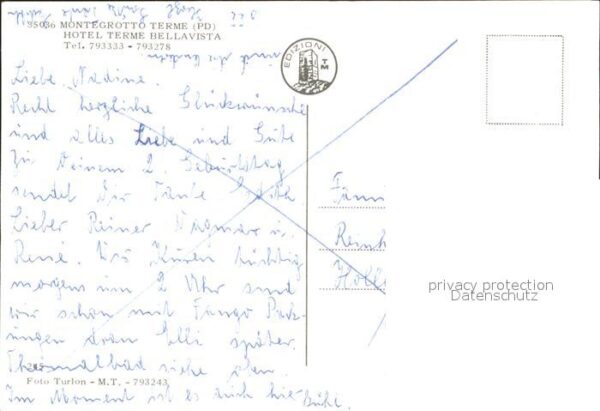 35036 MONTEGROTTO TERME (PD)
HOTEL TERME BELLAVISTA
Tel. 793333 - 793278
EDIZIONI
TM
und die andern
Liebe Nadine.
Recht herzliche Glückwünsche
und alles Liebe und Gute
zu Deinem 2. Geburtstag
sendet Dir Tante
Lieber Reiner Dagmar u.
René. Wir Kuren tüchtig
morgens um 2 Uhr sind
wir schon mit Fango Pack-
ungen dran Elli später.
Thermalbad siehe oben.
Im Moment ist es auch hier kühl.
Foto Turlon - M.T. - 793243
Fami
Reinh
privacy protection
Datenschutz